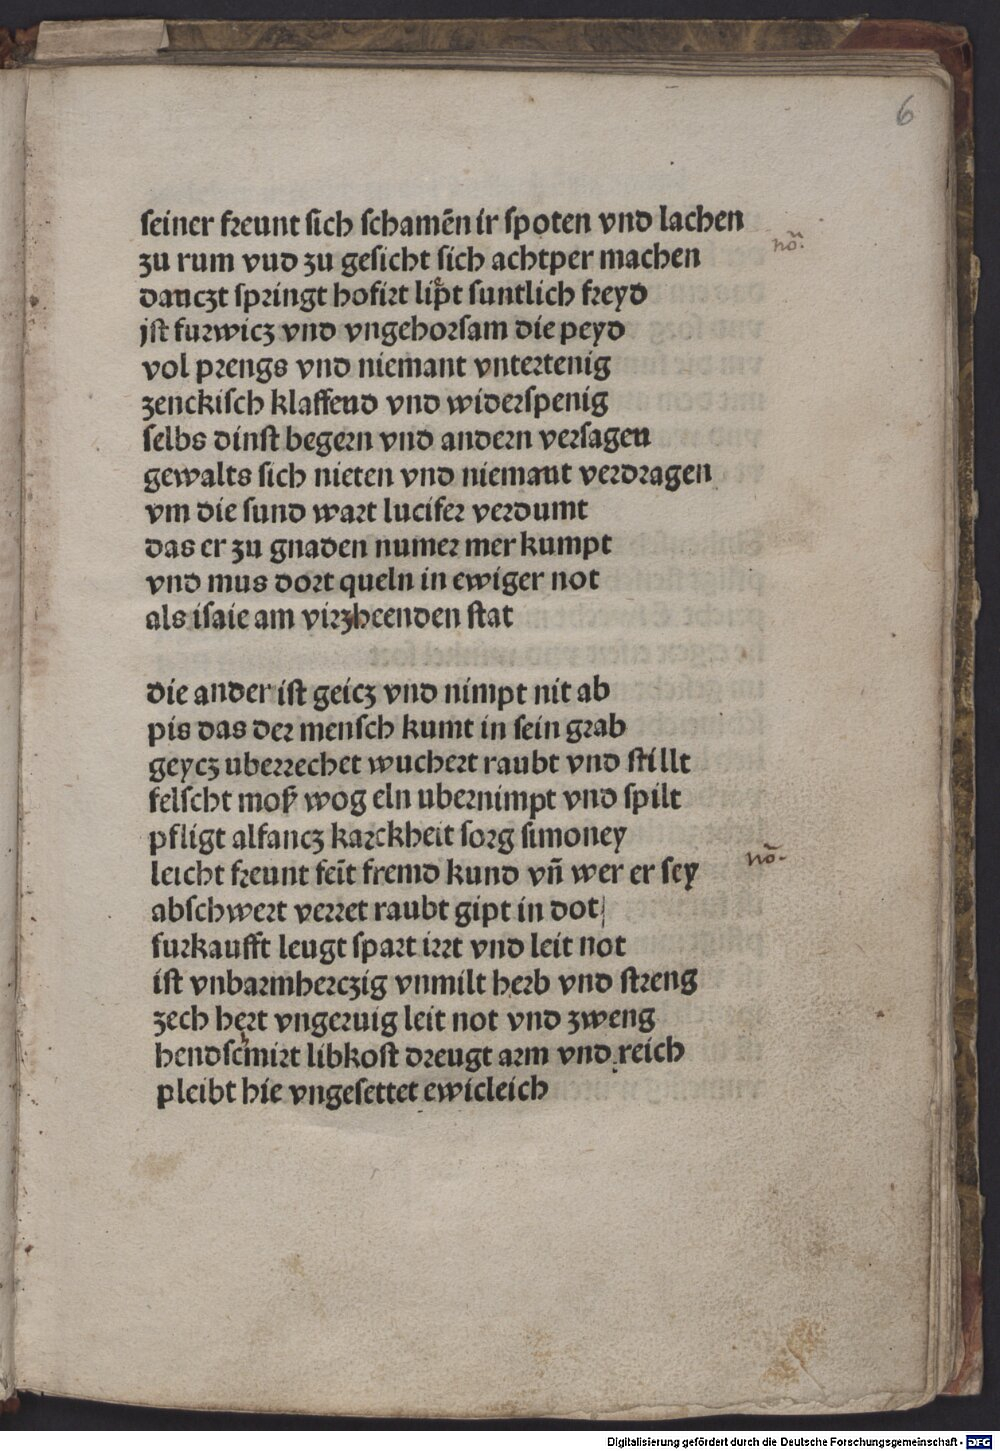 6
seiner freunt sich schamē ir spoten vnd lachen
zu rum vud zu gesicht sich achtper machen
no͞:
danczt springt hofirt lipt suntlich freyd
jst furwicz vnd vngehorsam die peyd
vol prengs vnd niemant vntertenig
zenckisch klaffend vnd widerspenig
selbs dinst begern vnd andern versagen
gewalts sich nieten vnd niemant verdragen
vm die sund wart lucifer verdumt
das er zu gnaden numer mer kumpt
vnd mus dort queln in ewiger not
als isaie am virzheenden stat
die ander ist geicz vnd nimpt nit ab
pis das der mensch kumt in sein grab
geycz uberrechet wuchert raubt vnd stillt
felscht moß wog eln ubernimpt vnd spilt
pfligt alfancz karckheit sorg simoney
no͞.
leicht freunt feīt fremd kund vn̄ wer er sey
abschwert verret raubt gipt in dot
furkaufft leugt spart irrt vnd leit not
ist vnbarmherczig vnmilt herb vnd streng
zech hert vngeruig leit not vnd zweng
hendscmirt libkost dreugt arm vnd reich
pleibt hie vngesettet ewicleich
Digitalisierung gefördert durch die Deutsche Forschungsgemeinschaft - DFG